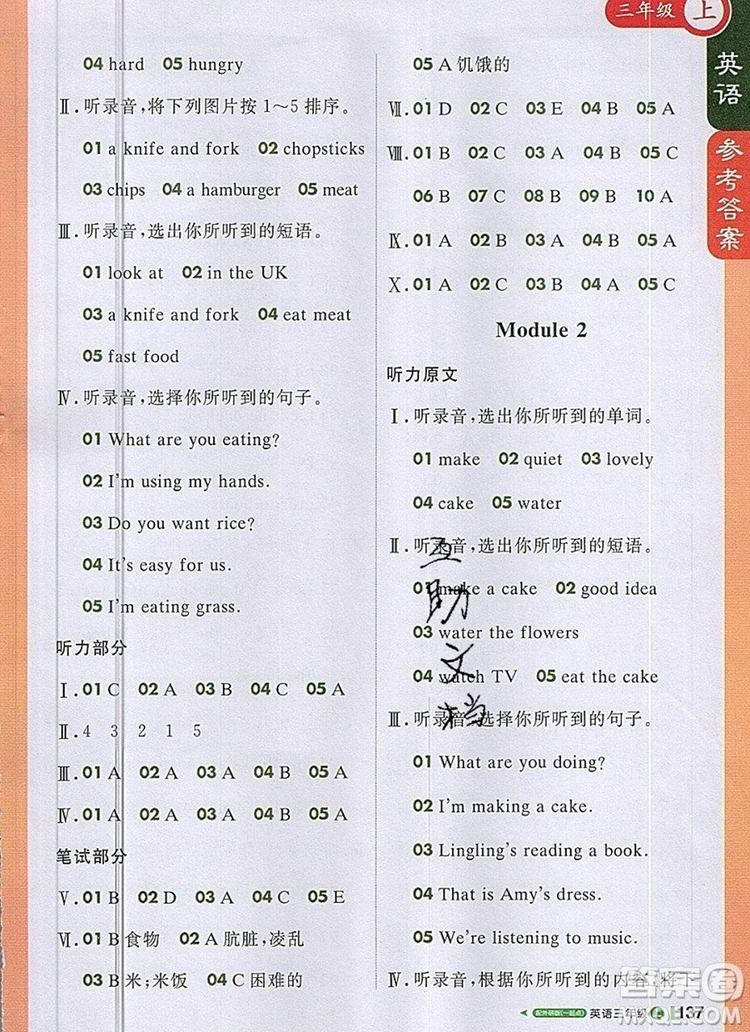 三年级 上
英语
参考答案
04 hard 05 hungry
Ⅱ. 听录音,将下列图片按1～5排序。
01 a knife and fork 02 chopsticks
03 chips 04 a hamburger 05 meat
Ⅲ. 听录音,选出你所听到的短语。
01 look at 02 in the UK
03 a knife and fork 04 eat meat
05 fast food
Ⅳ. 听录音,选择你所听到的句子。
01 What are you eating?
02 I'm using my hands.
03 Do you want rice?
04 It's easy for us.
05 I'm eating grass.
听力部分
Ⅰ. 01 C 02 A 03 B 04 C 05 A
Ⅱ. 4 3 2 1 5
Ⅲ. 01 A 02 A 03 A 04 B 05 A
Ⅳ. 01 A 02 A 03 A 04 B 05 A
笔试部分
Ⅴ. 01 B 02 D 03 A 04 C 05 E
Ⅵ. 01 B 食物 02 A 肮脏,凌乱
03 B 米;米饭 04 C 困难的
05 A 饥饿的
Ⅶ. 01 D 02 C 03 E 04 B 05 A
Ⅷ. 01 B 02 C 03 A 04 B 05 C
06 B 07 C 08 B 09 B 10 A
Ⅸ. 01 A 02 B 03 A 04 B 05 A
Ⅹ. 01 A 02 C 03 B 04 B 05 C
Module 2
听力原文
Ⅰ. 听录音,选出你所听到的单词。
01 make 02 quiet 03 lovely
04 cake 05 water
Ⅱ. 听录音,选出你所听到的短语。
01 make a cake 02 good idea
03 water the flowers
04 watch TV 05 eat the cake
Ⅲ. 听录音,选择你所听到的句子。
01 What are you doing?
02 I'm making a cake.
03 Lingling's reading a book.
04 That is Amy's dress.
05 We're listening to music.
Ⅳ. 听录音,根据你所听到的内容,将下
互助文档
配外研版(一起点) 英语三年级 上 137
答案圈